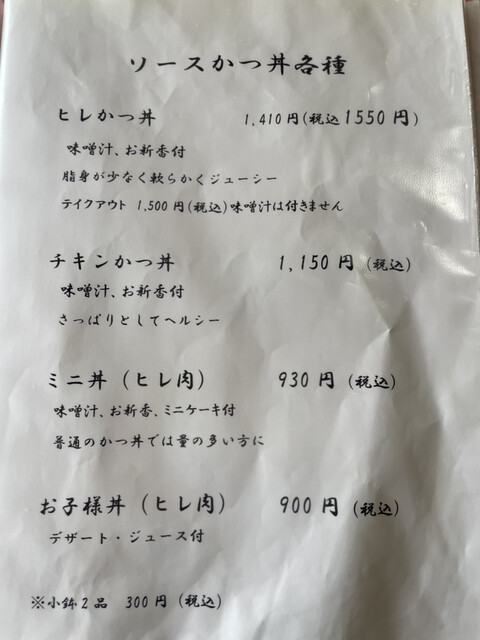 ソースかつ丼各種
ヒレかつ丼 1,410円(税込1550円)
味噌汁、お新香付
脂身が少なく軟らかくジューシー
テイクアウト 1,500円(税込)味噌汁は付きません
チキンかつ丼 1,150円(税込)
味噌汁、お新香付
さっぱりとしてヘルシー
ミニ丼(ヒレ肉) 930円(税込)
味噌汁、お新香、ミニケーキ付
普通のかつ丼では量の多い方に
お子様丼(ヒレ肉) 900円(税込)
デザート・ジュース付
※小鉢2品 300円(税込)